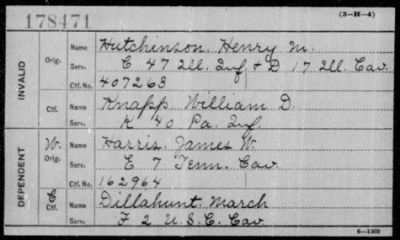 178471
(3-H-4)
INVALID
Orig. Name Hutchinson, Henry M.
Serv. C 47 Ill. Inf. & D 17 Ill. Cav.
Ctf. No. 407263
Ctf. Name Knapp, William D.
Serv. K 40 Pa. Inf.
DEPENDENT
W. Orig. Name Harris, James W.
Serv. E 7 Tenn. Cav.
Ctf. No. 162964
C Ctf. Name Dillahunt, March
Serv. F 2 U.S.C. Cav.
6-1309